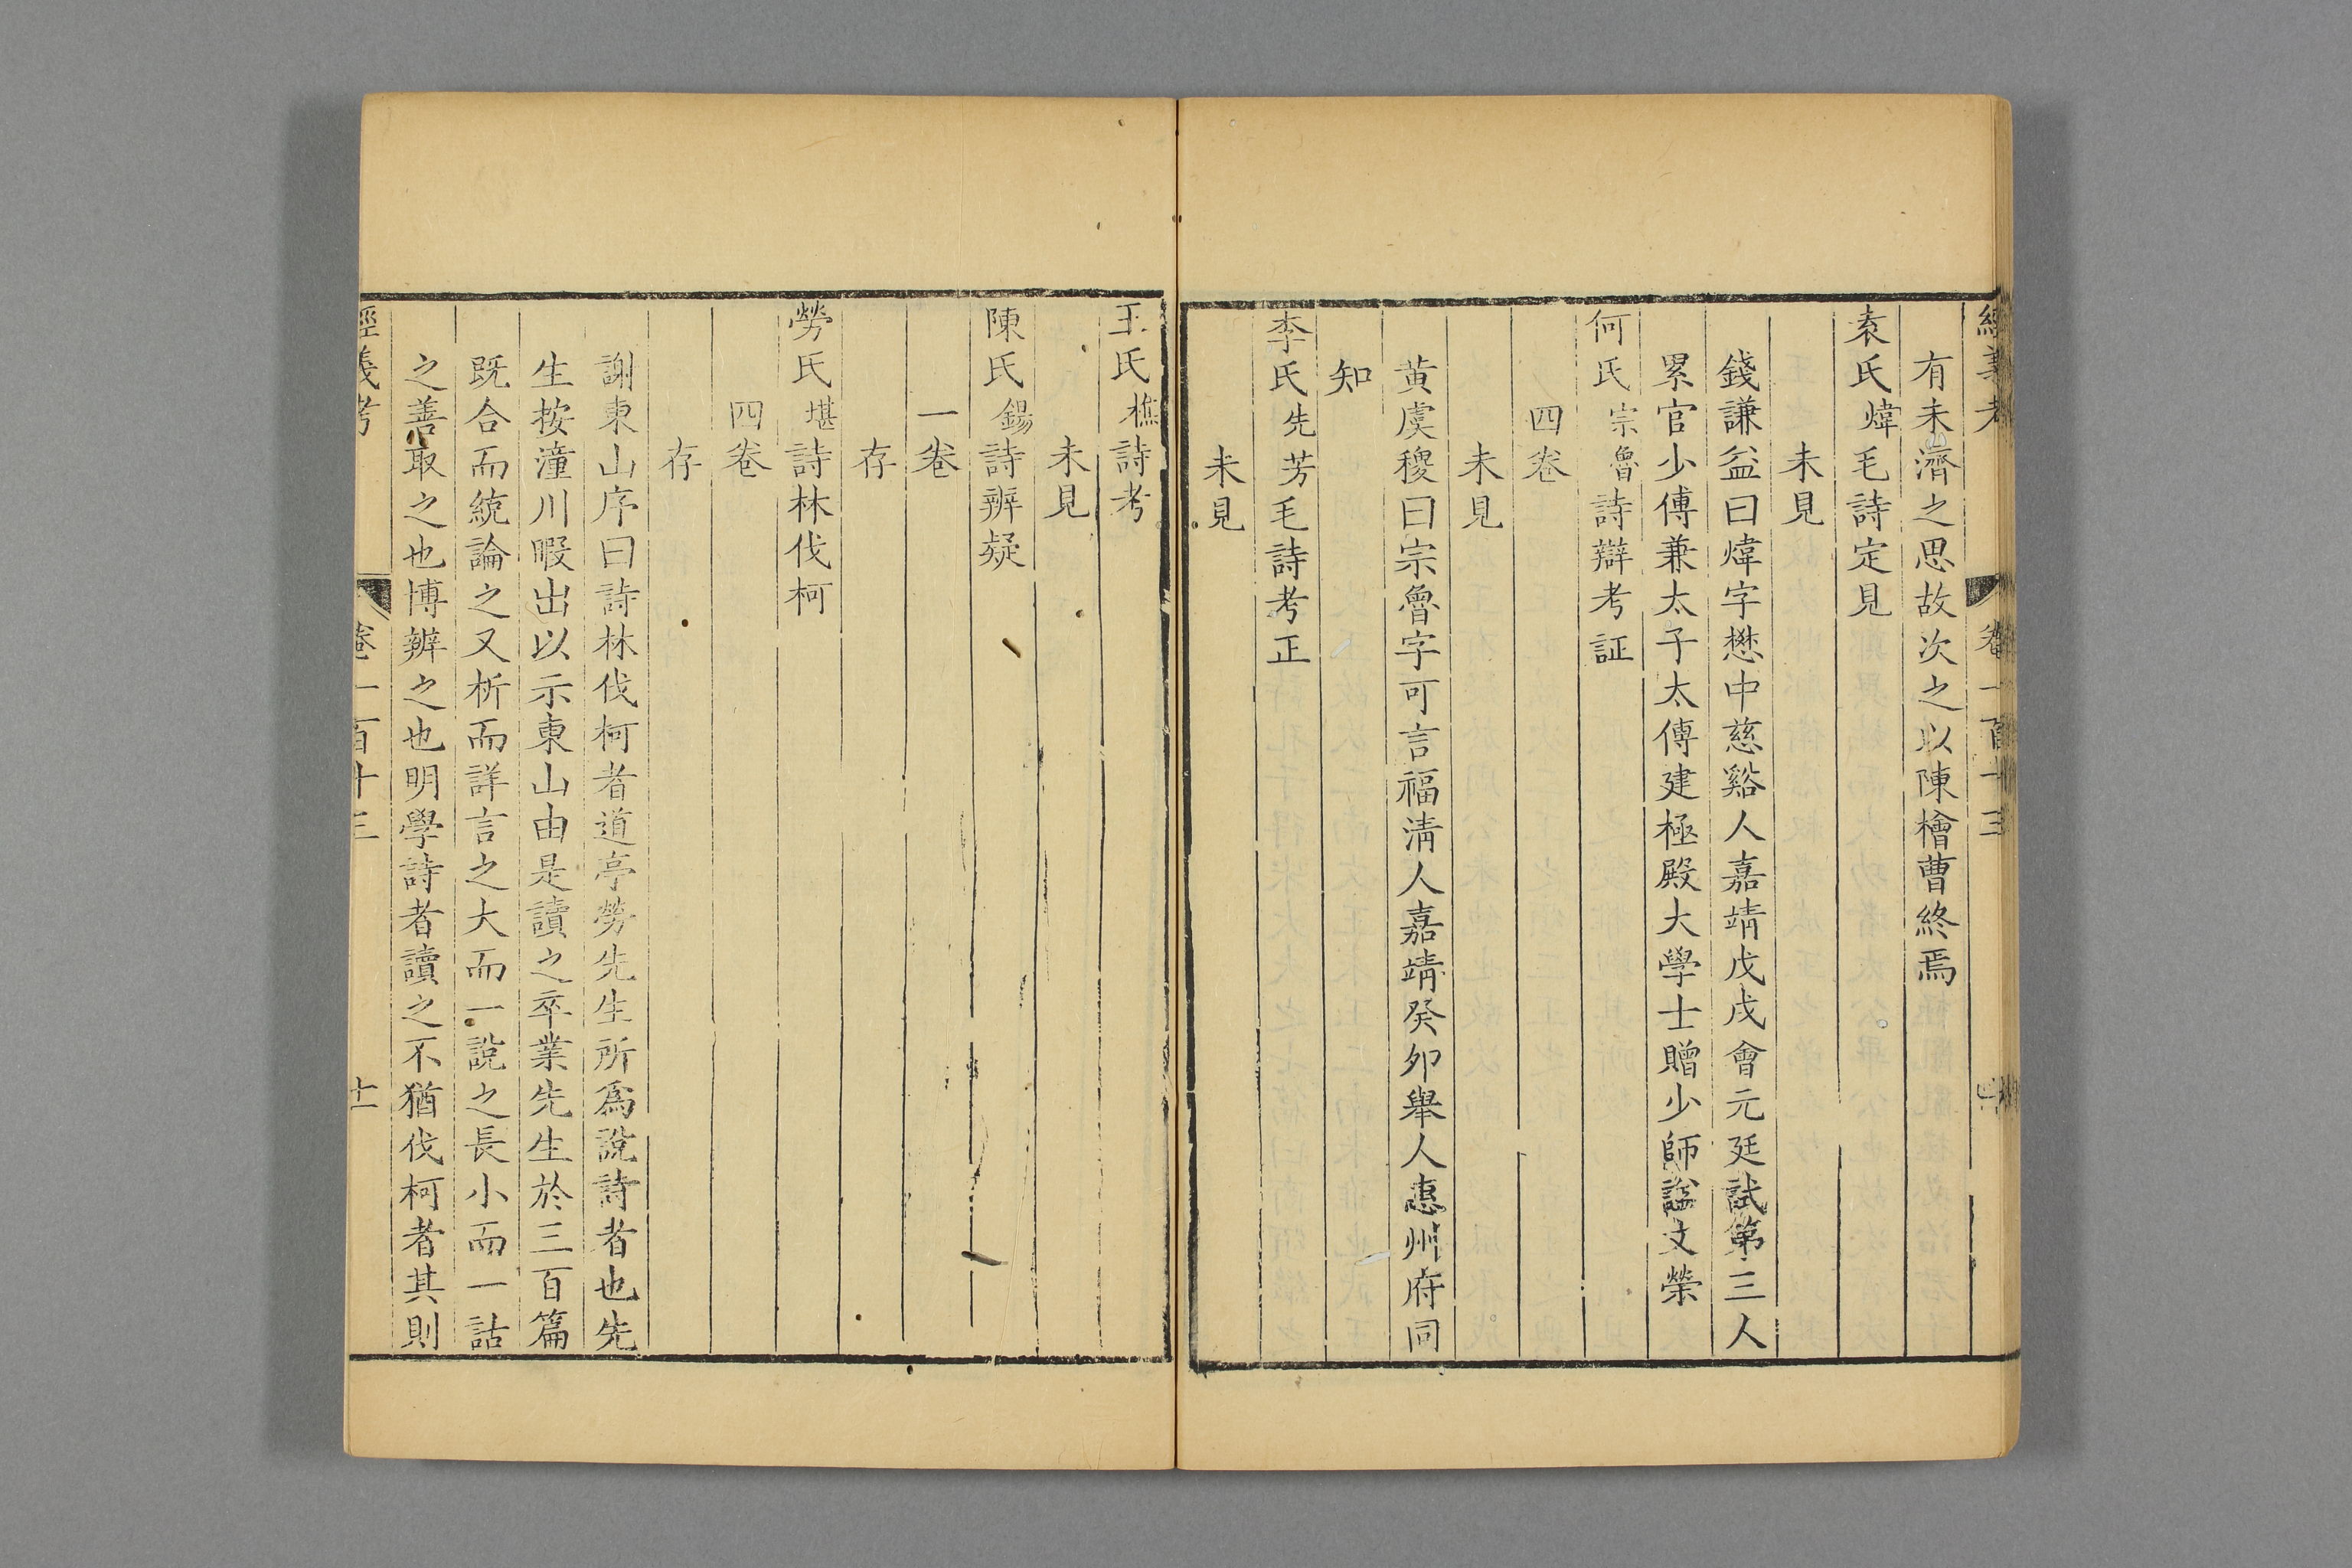 經義考
卷一百十三
有未濟之思故次之以陳檜曹終焉
袁氏煒毛詩定見
未見
錢謙益曰煒字懋中慈谿人嘉靖戊戌會元廷試第三人
累官少傅兼太子太傅建極殿大學士贈少師諡文榮
何氏宗魯詩辯考証
四卷
未見
黃虞稷曰宗魯字可言福淸人嘉靖癸夘舉人惠州府同
知
李氏先芳毛詩考正
未見
王氏樵詩考
未見
陳氏錫詩辨疑
一卷
存
勞氏堪詩林伐柯
四卷
存
謝東山序曰詩林伐柯者道亭勞先生所爲說詩者也先
生按潼川暇出以示東山由是讀之卒業先生於三百篇
既合而統論之又析而詳言之大而一說之長小而一詁
之善取之也博辨之也明學詩者讀之不猶伐柯者其則
經義考
卷一百十三
十一